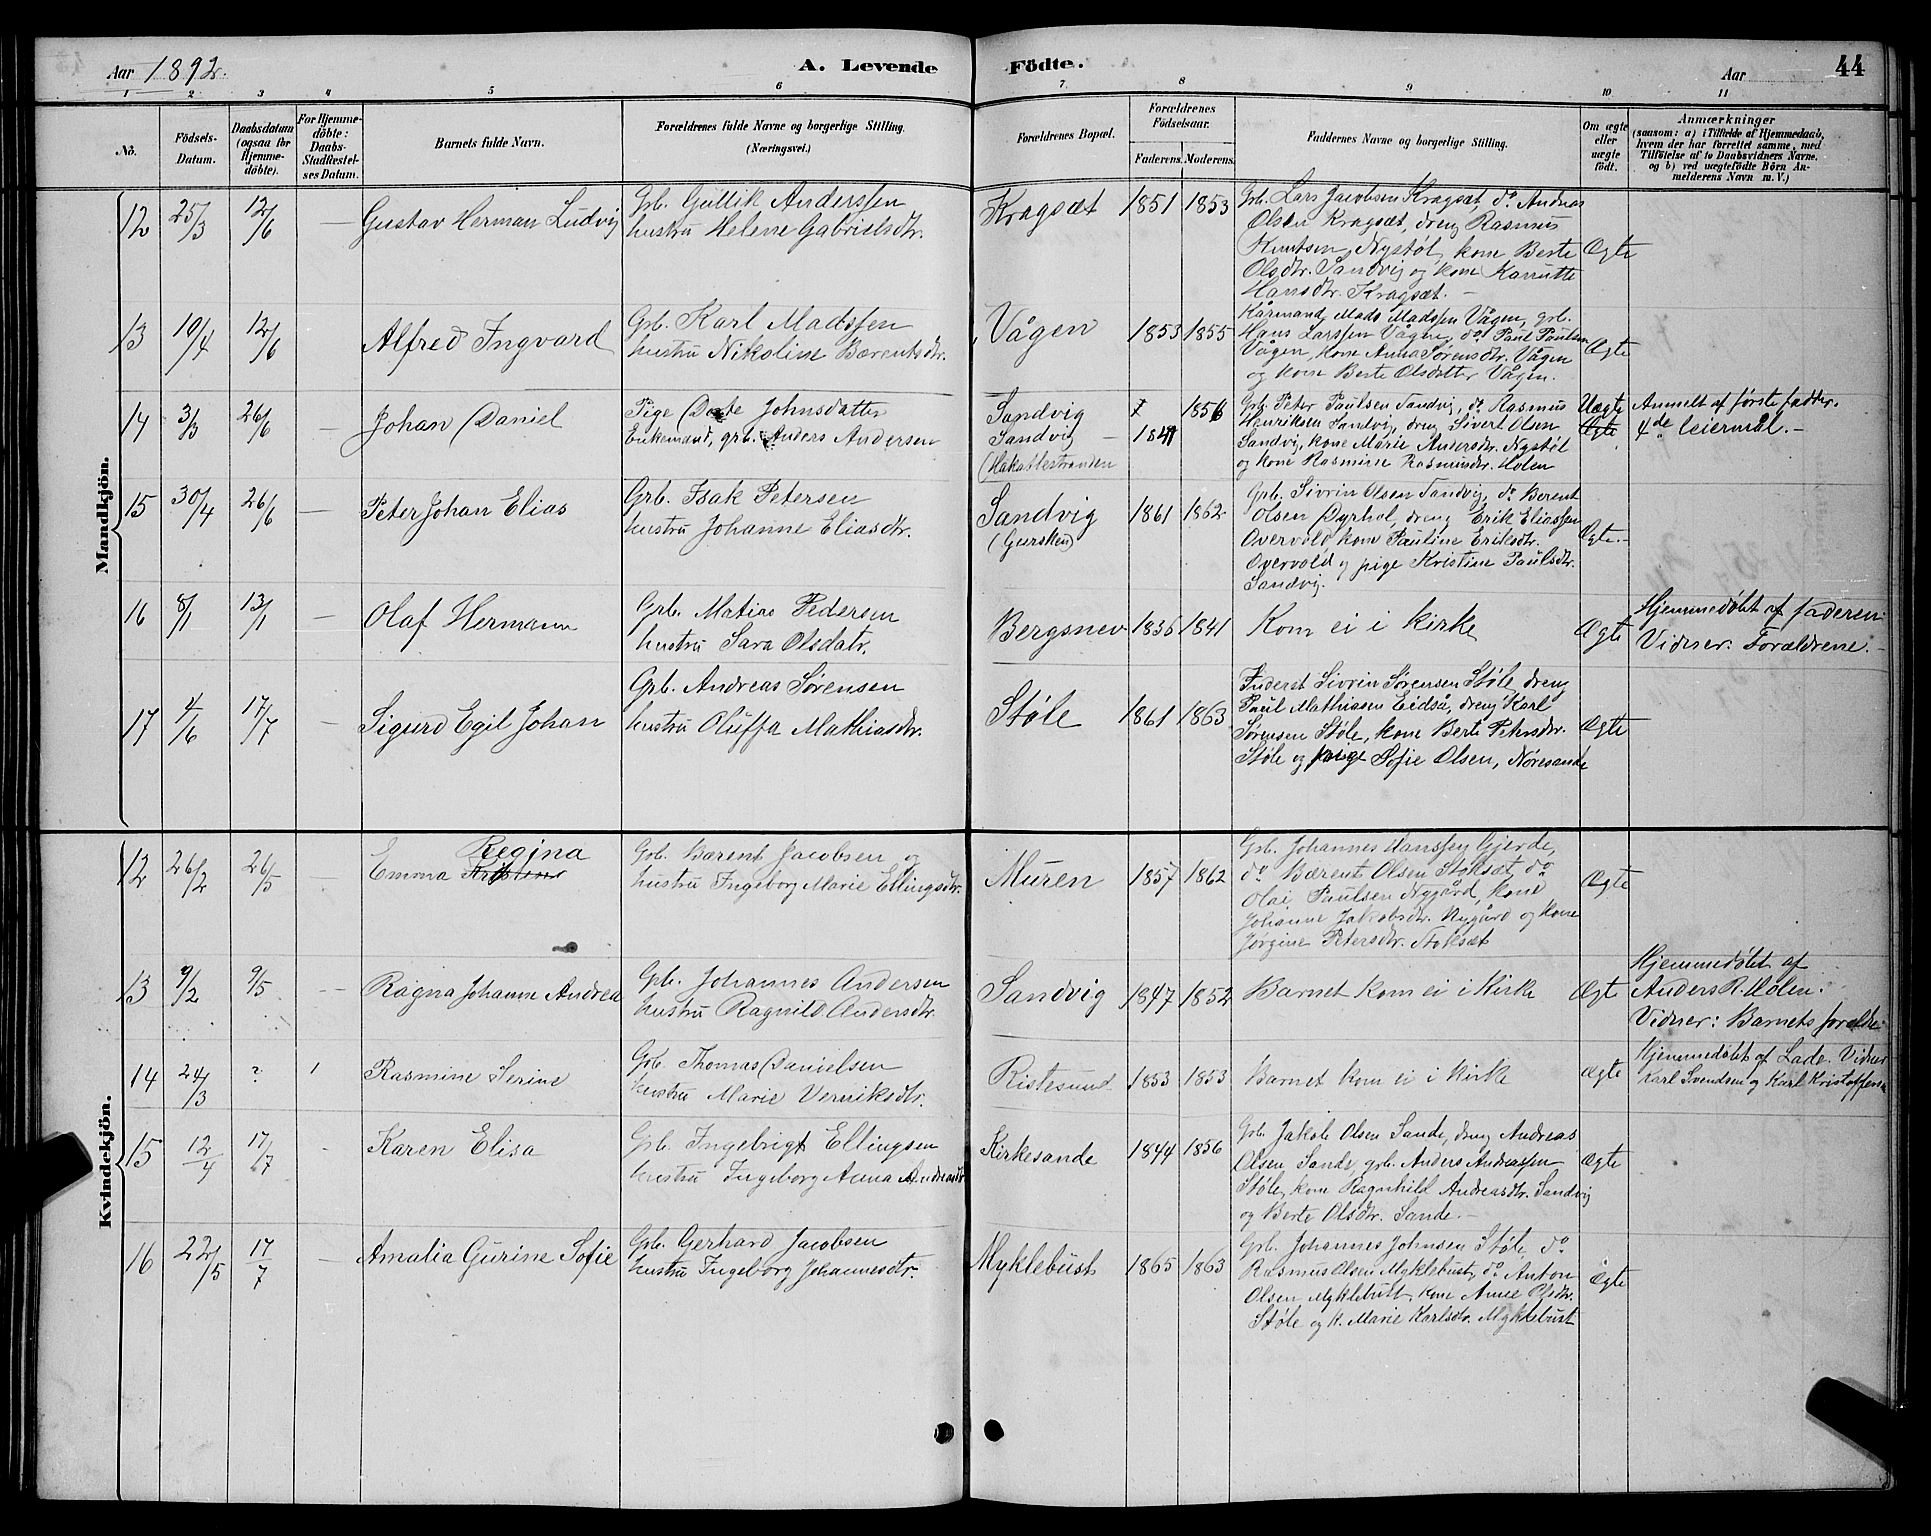 Aar 1892.
A. Levende
Födte.
Aar
44
1
2
3
4
5
6
7.
8
9
10
11
No.
Födsels-
Datum.
Daabsdatum
(ogsaa for
Hjemme-
döbte).
For Hjemme-
döbte:
Daabs-
Stadfæstel-
ses Datum.
Barnets fulde Navn.
Forældrenes fulde Navne og borgerlige Stilling.
(Næringsvei.)
Forældrenes Bopæl.
Forældrenes
Födselsaar.
Faderens.
Moderens.
Faddernes Navne og borgerlige Stilling.
Om ægte
eller
uægte
födt.
Anmærkninger
(saasom: a) i Tilfælde af Hjemmedaab,
hvem der har forrettet samme, med
Tilföielse af to Daabsvidners Navne.
og b) ved uægtefödte Börn An-
melderens Navn m. V.)
Mandkjön.
12
25/3
12/6
—
Gustav Herman Ludvig
Grb. Gullik Anderssen
hustru Helene Gabrielsdtr.
Kragsæt
1851
1853
Grb. Lars Jacobsen Kragsæt, do Andreas
Olsen Kragsæt, dreng Rasmus
Knutsen, Nystøl, kone Berte
Olsdtr. Sandvig og kone
Hansdtr. Kragsæt. —
Ægte
13
10/4
12/6
Alfred Ingvard
Grb. Karl Madssen
hustru Nikoline Bærentsdtr.
Vågen
1853
1855
Kårmand Mads Madssen Vågen, grb.
Hans Larssen Vågen, do Paul Paulsen
Vågen, kone Anna Sørensdtr. Vågen
og kone Berte Olsdatter Vågen.
Ægte
14
3/3
26/6
Johan Daniel
Pige Johnsdatter
Enkemand, grb. Anders Andersen
Sandvig
Sandvig
(Hakallestranden
1841
1856
Grb. Peter Paulsen Sandvig, do Rasmus
Henriksen Sandvig, dreng Sivert Olsen
Sandvig, kone Marie Andersdtr. Nystøl
og kone Rasmine Rasmusdtr. Holen
Uægte
Ægte
Anmelt af første fadder.
4de leiermål. —
15
30/4
26/6
—
Peter Johan Elias
Grb. Isak Petersen
hustru Johanne Eliasdtr.
Sandvig
(Gursken)
1861
1862
Grb. Sivrin Olsen Sandvig, do Berent
Olsen Dyrhol, dreng Erik Eliassen
Overvold, kone Pauline Eriksdtr.
Overvold og pige Kristine Paulsdtr.
Sandvig.
Ægte. —
16
8/1
13/1
—
Olaf Hermann
Grb. Matias Pedersen
hustru Sara Olsdatr.
Bergsnev
1836
1841
Kom ei i kirke
Ægte
Hjemmedøbt af faderen.
Vidner: Forældrene. —
17
4/6
17/7
—
Sigurd Egil Johan
Grb. Andreas Sørensen
hustru Oluffa Mathiasdtr.
Støle
1861
1863
Inderst Sivrin Sørensen Støle, dreng
Paul Mathiasen Eidså, dreng Karl
Sørensen Støle, kone Berte Petersdtr.
Støle og pige Sofie Olsen, Nøresande
Ægte
Kvindekjön.
12
26/2
26/5
—
Regina
Emma
Grb. Bærent Jacobsen og
hustru Ingeborg Marie Ellingsdtr.
Muren
1857
1862
Grb. Johannes Hanssen Gjerde,
do Bærent Olsen Stoksæt, do
Olai Paulsen Nygård, kone
Johanne Jakobsdtr. Nygård og kone
Jørgine Petersdtr. Stoksæt
Ægte
13
9/2
9/5
—
Ragna Johanne Andrea
Grb. Johannes Andersen
hustru Ragnild Andersdtr.
Sandvig
1847
1852
Barnet kom ei i kirke
Ægte
Hjemmedøbt af
Anders R. Holen.
Vidner: Barnets foreldre
14
24/3
?
Rasmine Serine
Grb. Thomas Danielsen
hustru Marie Verniksdtr.
Ristesund
1853
1853
Barnet kom ei i kirke
Ægte
Hjemmedøbt af Lade. Vidner
Karl Svendsen og Karl Kristoffersen
15
12/4
17/7
Karen Elisa
Grb. Ingebrigt Ellingsen
hustru Ingeborg Anna Andreasdtr
Kirkesande
1844
1856
Grb. Jakob Olsen Sande, dreng Andreas
Olsen Sande, grb. Anders Andreassen
Støle, kone Ragnhild Andreasdtr. Sandvig
og Berte Olsdtr. Sande. —
Ægte
16
22/5
17/7
—
Amalia Gurine Sofie
Grb. Gerhard Jacobsen
hustru Ingeborg Johannesdtr.
Myklebust
1865
1863
Grb. Johannes Johnsen Støle, do
Rasmus Olsen Myklebust, do Anton
Olsen Myklebust, kone Anne Olsdtr.
Støle og k. Marie Karlsdtr. Myklebust
Ægte